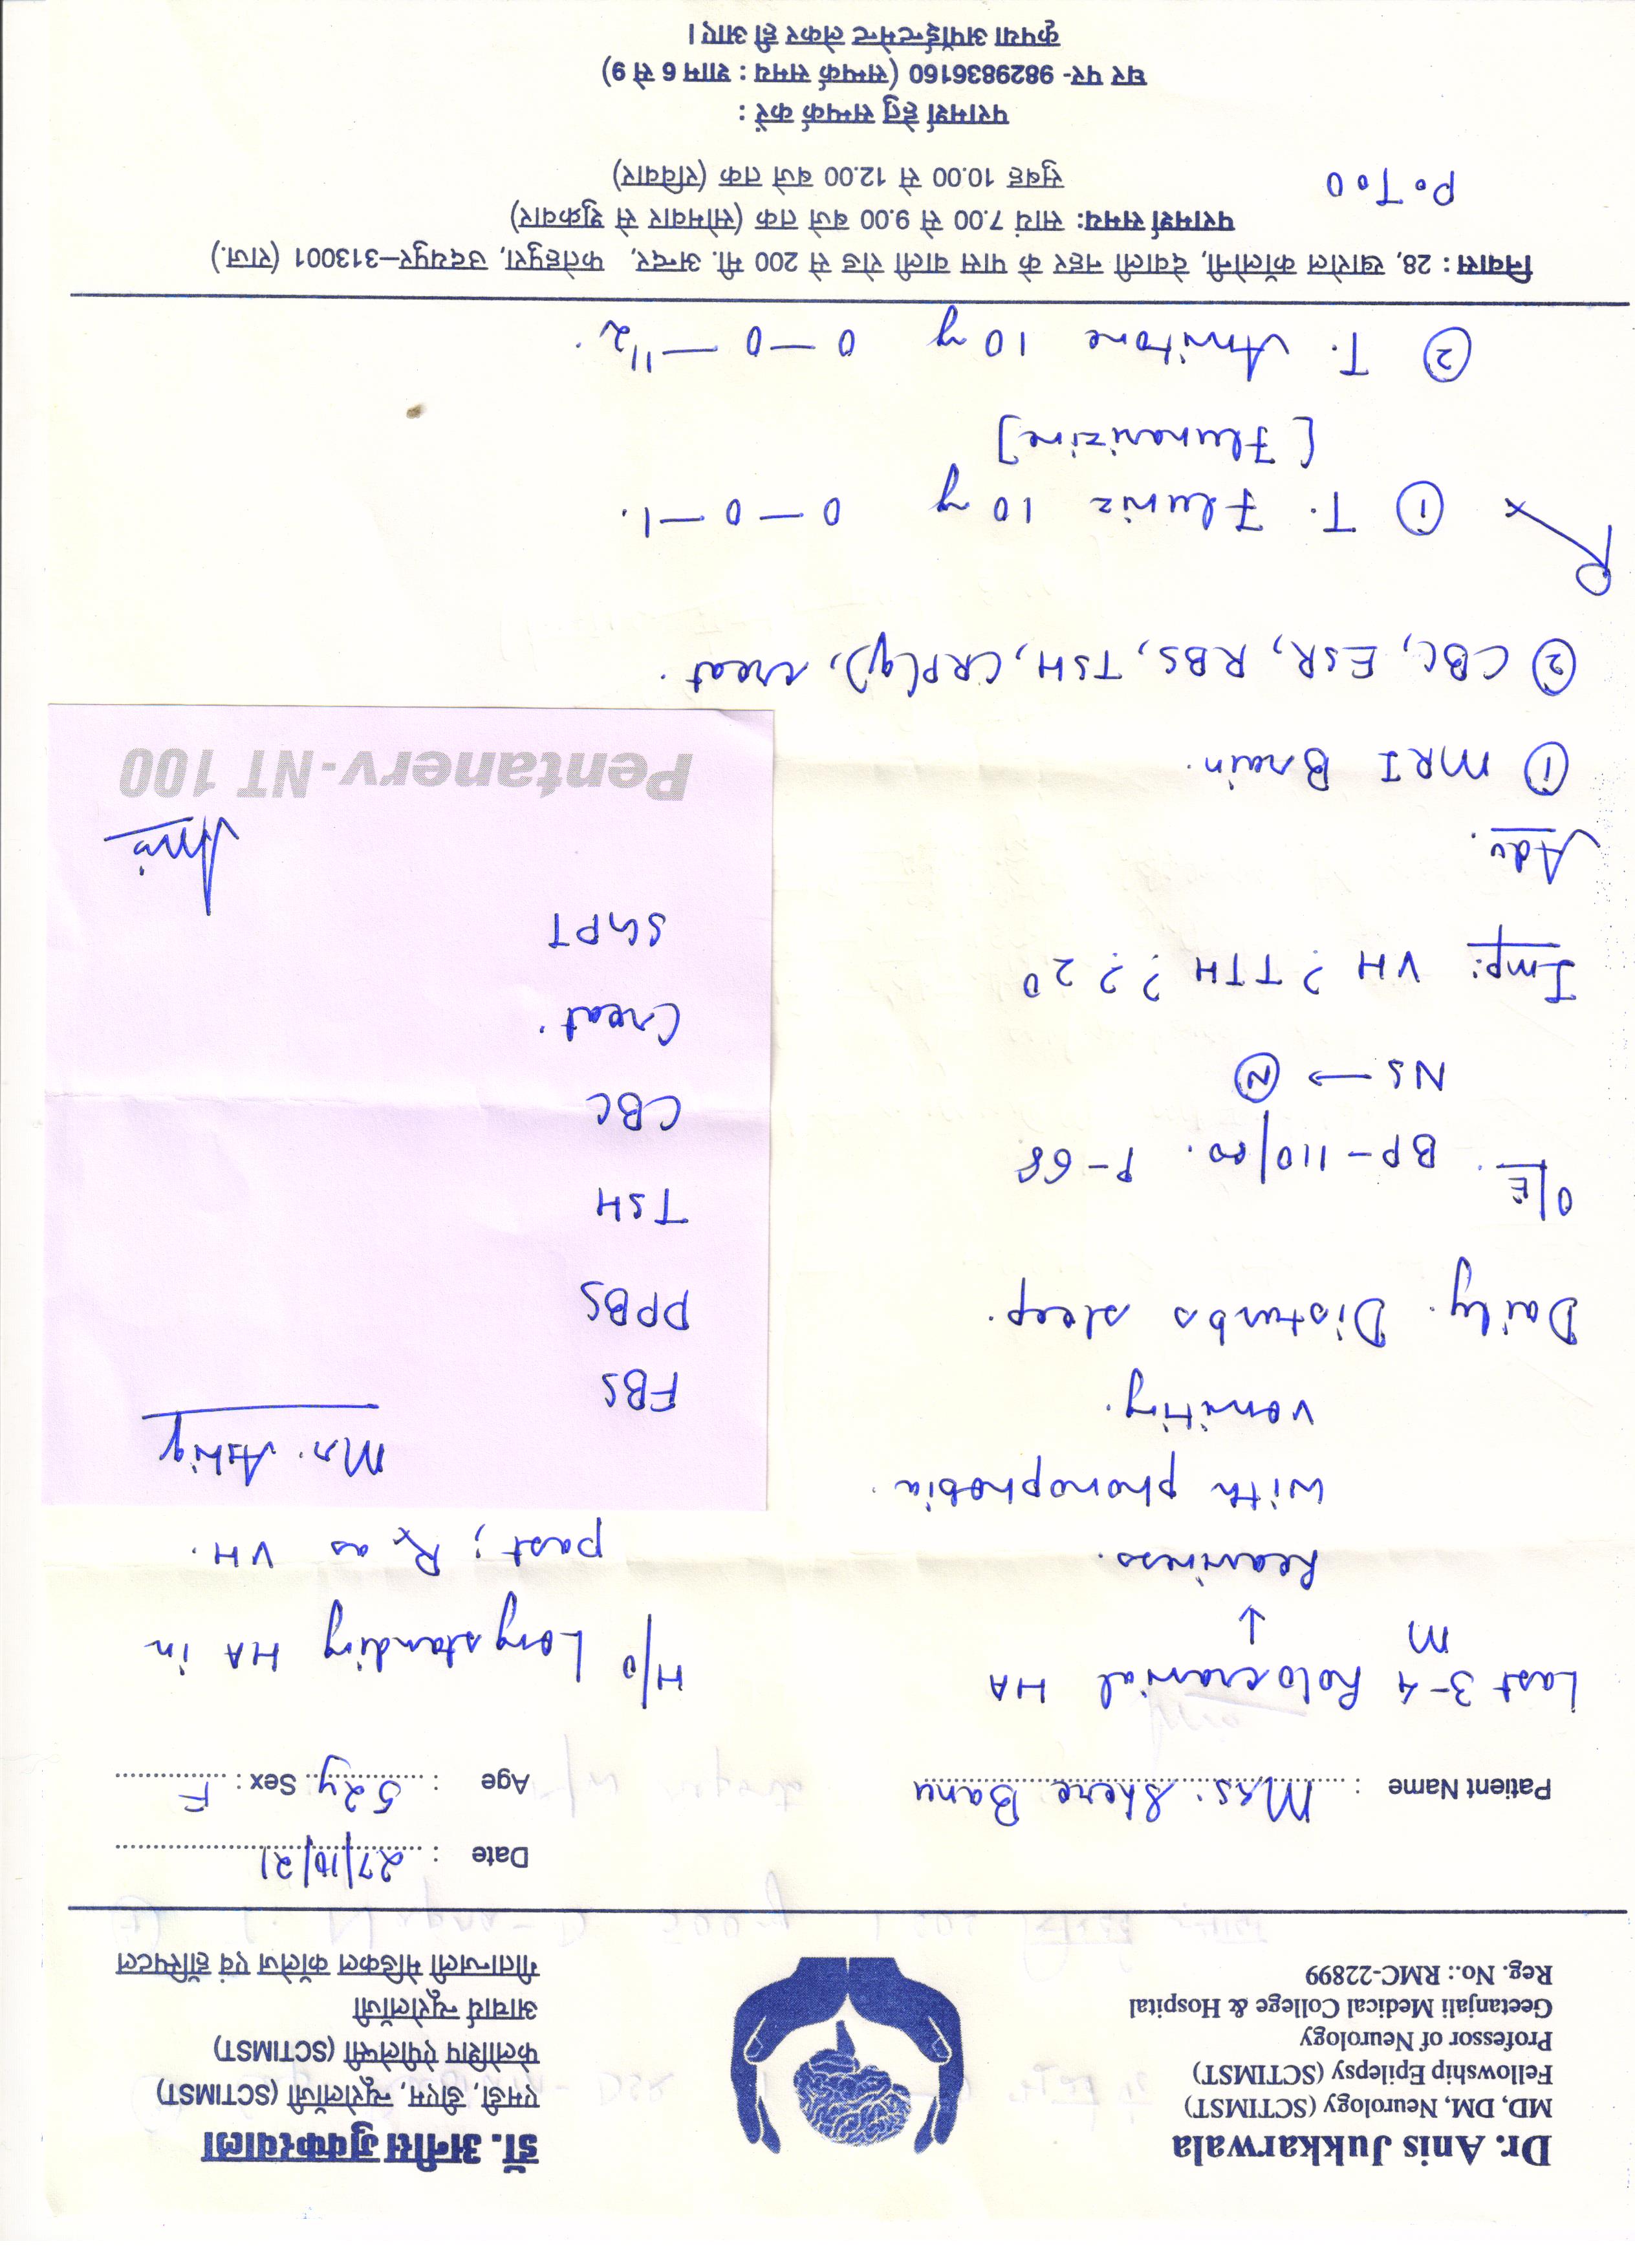 Dr. Anis Jukkarwala
MD, DM, Neurology (SCTIMST)
Fellowship Epilepsy (SCTIMST)
Professor of Neurology
Geetanjali Medical College & Hospital
Reg. No.: RMC-22899
डॉ. अनीस जुक्करवाला
एमडी, डीएम, न्यूरोलॉजी (SCTIMST)
फेलोशिप ऐपीलेप्सी (SCTIMST)
आचार्य न्यूरोलॉजी
गीतान्जली मेडिकल कॉलेज एवं हॉस्पिटल
Date : 27/10/21
Patient Name : Mrs. Shere Banu
Age : 52y Sex : F
Last 3-4 m Holocranial HA
↓
heaviness.
with phonophobia.
vomiting.
Daily. Disturbs sleep.
H/o Longstanding HA in
past; Rx as VH.
O/E. BP-110/80. P-68
NS → N
Imp: VH ? TTH ? ? 2°
Adv.
① MRI Brain.
② CBC, ESR, RBS, TSH, CRP(q), creat.
Mr. Ashiq
FBS
PPBS
TSH
CBC
Creat.
SGPT
Anis
Pentanerv-NT 100
Rx ① T. Fluniz 10 mg 0-0-1.
[Flunarizine]
② T. Amitone 10 mg 0-0-1½.
निवास : 28, खारोल कॉलोनी, देवाली नहर के पास वाली रोड से 200 मी. अन्दर, फतेहपुरा, उदयपुर–313001 (राज.)
परामर्श समय: सायं 7.00 से 9.00 बजे तक (सोमवार से शुक्रवार)
सुबह 10.00 से 12.00 बजे तक (रविवार)
P.T.O
परामर्श हेतु सम्पर्क करें :
घर पर- 9829836160 (सम्पर्क समय : शाम 6 से 9)
कृपया अपॉईन्टमेन्ट लेकर ही आए।